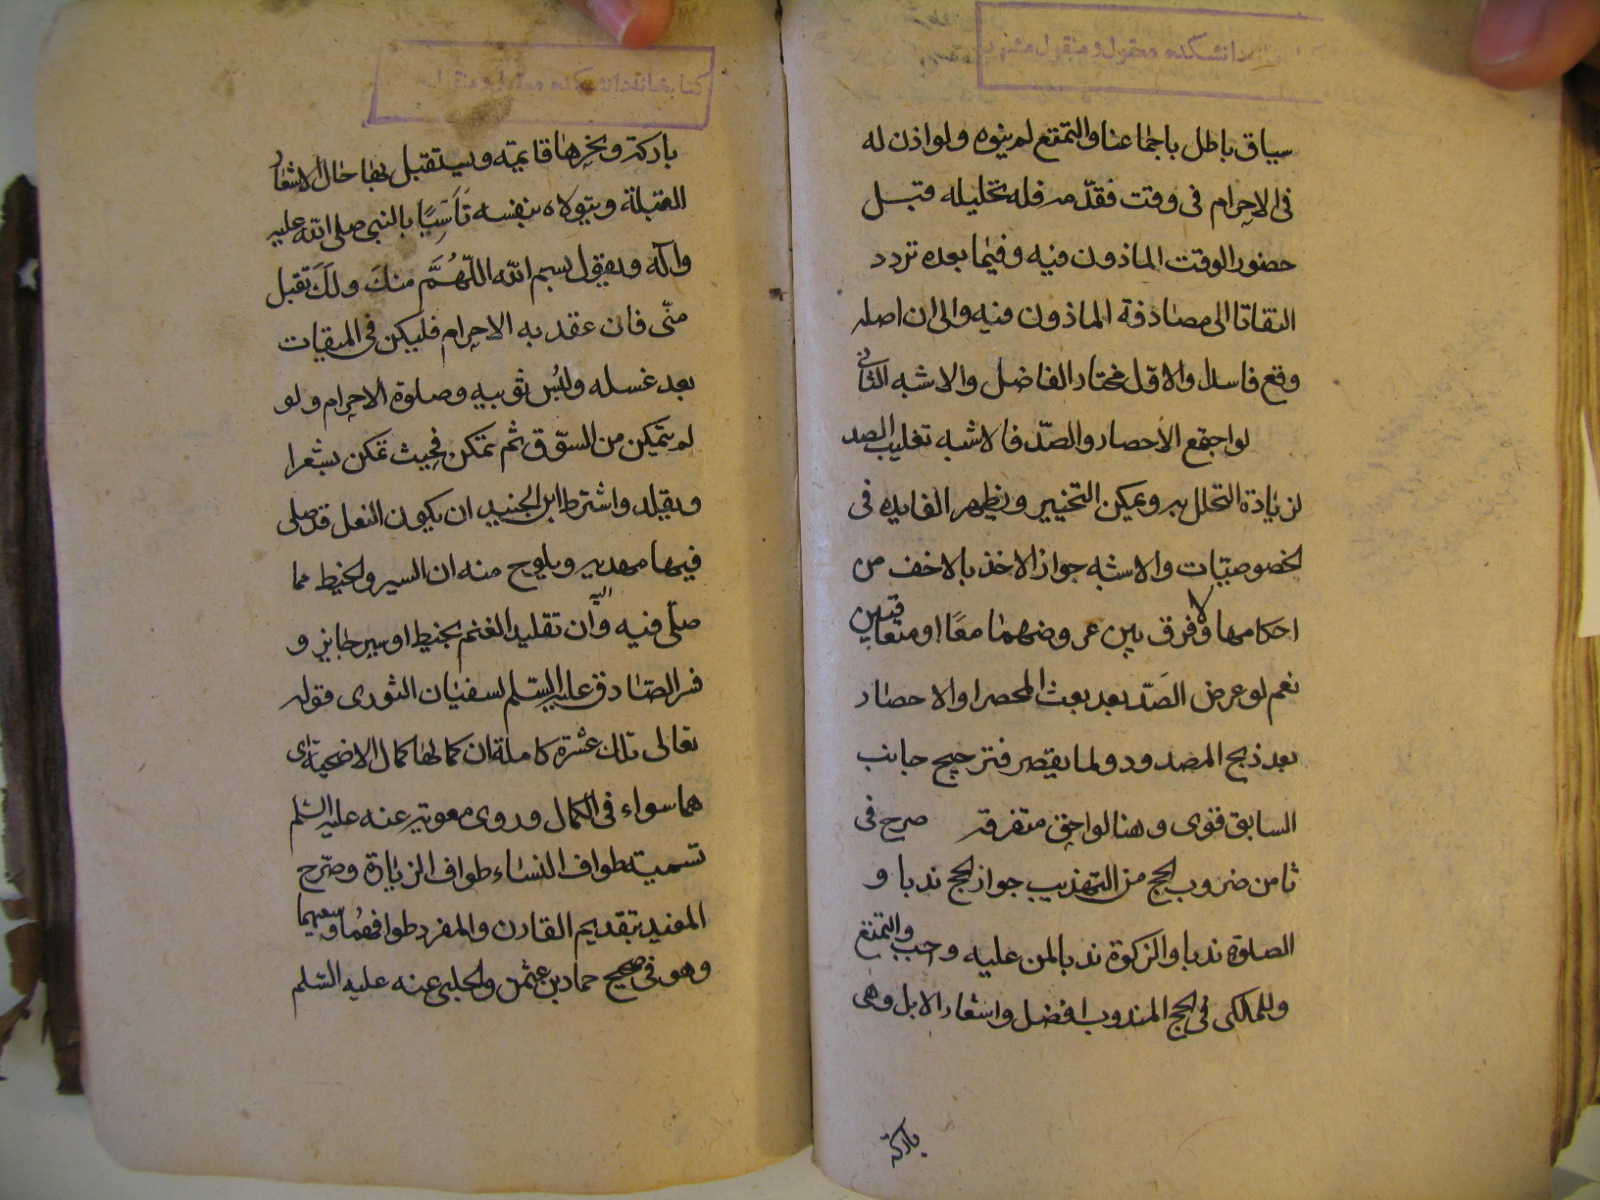 دانشكده معقول و منقول مشهد
سياق باطل باجماعنا والتمتع لم ينوه ولو اذن له
فى الاحرام فى وقت فقدّمه فله تحليله قبل
حضور الوقت الماذون فيه وفيما بعده تردد
التفاتا الى مصادفة الماذون فيه والى ان اصله
وقع فاسدا والاول مختار الفاضل والاشبه الثانى
لو اجتمع الاحصار والصدّ فالاشبه تغليب الصد
لزيادة التحلل به ويمكن التخيير ويظهر الفايده فى
الخصوصيّات والاشبه جواز الاخذ بالاخف من
احكامهما ولا فرق بين عروضهما معًا او متعاقبين
نعم لو عرض الصَدّ بعد بعث المحصر او الاحصار
بعد ذبح المصدود ولما يقصر فترجيح جانب
السابق قوى وهنا لواحق متفرقه صرح فى
ثامن ضروب الحج من التهذيب جواز الحج ندبا و
الصلوة ندبا والزكوة ندبا لمن عليه وجب والتمتع
وللمكى فى الحج المندوب افضل واشعار الابل وهى
باركة
باركة ونحرها قايمة ويستقبل بها حال الاشعار
القبلة ويتولاه بنفسه تَاَسِّيًا بالنبى صلى الله عليه
وآله ويقول بسم الله اللّهُمَّ منكَ ولَكَ تقبل
منّى فان عقد به الاحرام فليكن فى الميقات
بعد غسله ولبُس ثوبيه وصلوة الاحرام ولو
لم يتمكن من السوّق ثم تمكن فحيث تمكن يشعرا
ويقلد واشترط ابن الجنيد ان يكون النعل قد صلى
فيها مهديه ويلوح منه ان السير والخيط مما
صلّى فيه وانّ تقليد الغنم بخيط او سير جايز و
فسر الصّادق عليه السّلم لسفيان الثورى قوله
تعالى تلك عشرة كاملة ان كمالها كمال الاضحية اى
هما سواء فى الكمال وروى معويه عنه عليه السّلم
تسمية طواف النساء طواف الزيارة وصرّح
المفيد بتقديم القارن والمفرد طوافهُما وسعيهما
وهو فى صحيح حماد بن عثمن والحلبى عنه عليه السّلم